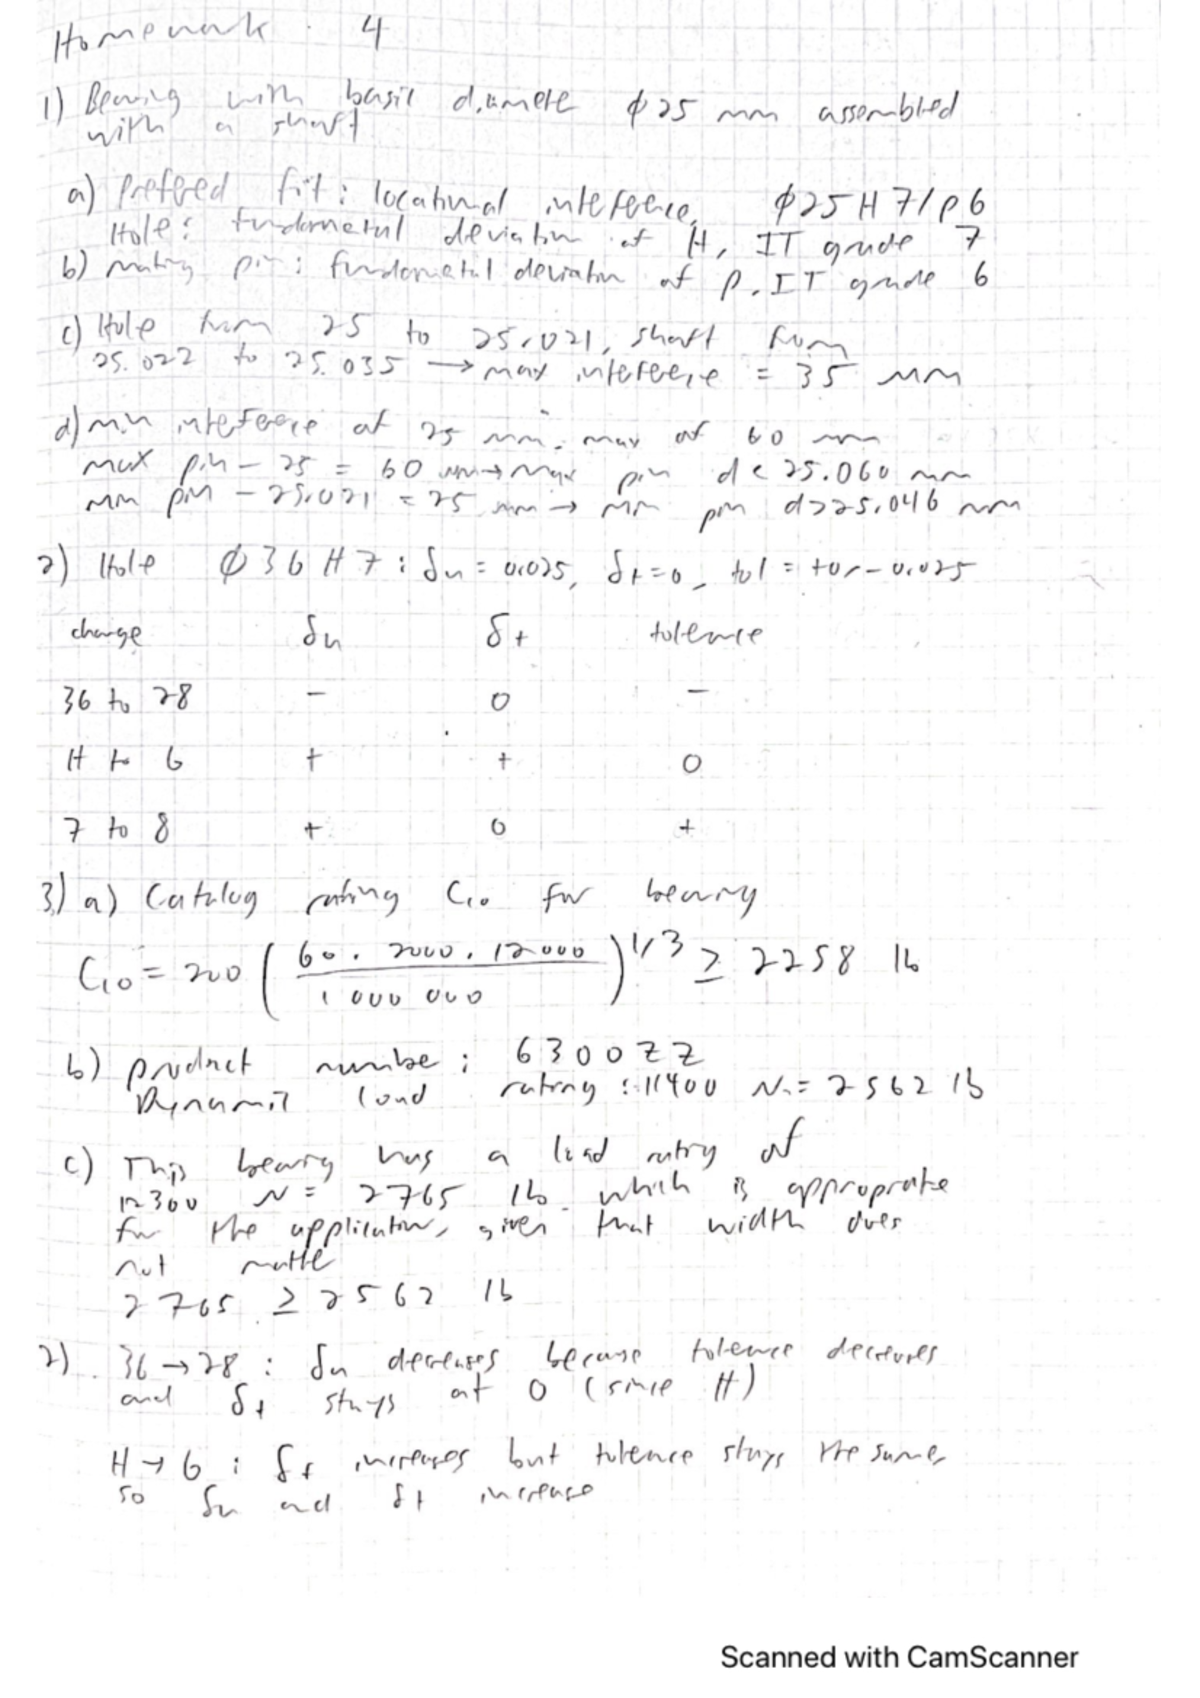 Homework 4
1) Bearing with basic diamete ϕ25 mm assembled
with a shaft
a) Prefered fit: locational inteference, ϕ25 H7/p6
Hole: fundametal deviation of H, IT grade 7
b) mating pin: fundametal deviation of p, IT grade 6
c) Hole from 25 to 25.021, shaft from
25.022 to 25.035 → max inteferece = 35 μm
d) min inteference at 25 μm, max at 60 μm
max pin - 25 = 60 μm → max pin d < 25.060 mm
min pin - 25.021 = 25 μm → min pin d > 25.046 mm
2) Hole ϕ36 H7: δu = 0.025, δt = 0, tol = +0/-0.025
change δu δt tolence
36 to 28 - 0 -
H to G + + 0
7 to 8 + 0 +
3) a) Catalog rating C10 for bearing
C10 = 200 ( 60 . 2000 . 12000 / 1 000 000 )^1/3 ≥ 2258 lb
b) product numbe: 6300ZZ
Dynamic load rating: 11400 N = 2562 lb
c) This bearing has a load rating of
12300 N = 2765 lb which is approprate
for the application, given that width does
not matte
2765 ≥ 2562 lb
2) 36 → 28: δu decreases because tolence decreases
and δt stays at 0 (since H)
H → G: δt increases but tolence stays the same,
so δu and δt increase
Scanned with CamScanner